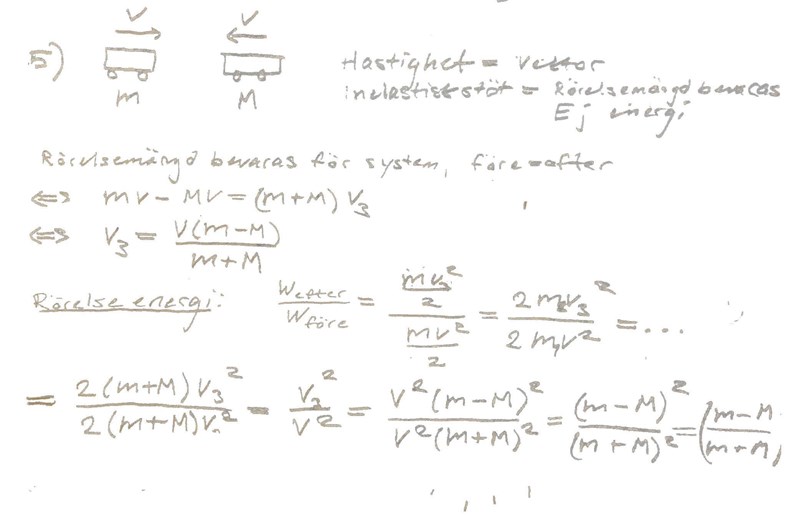 5) V V
m M
Hastighet = Vektor
Inelastisk stöt = Rörelsemängd bevaras
Ej energi
Rörelsemängd bevaras för system, före = efter
⇔ mv - Mv = (m+M) V₃
⇔ V₃ = V(m-M) / m+M
Rörelse energi: W efter / W före = (mv₃² / 2) / (mv² / 2) = 2 m₂v₃² / 2 m₁v² = ...
= 2(m+M)V₃² / 2(m+M)V² = V₃² / V² = V²(m-M)² / V²(m+M)² = (m-M)² / (m+M)² = (m-M / m+M)